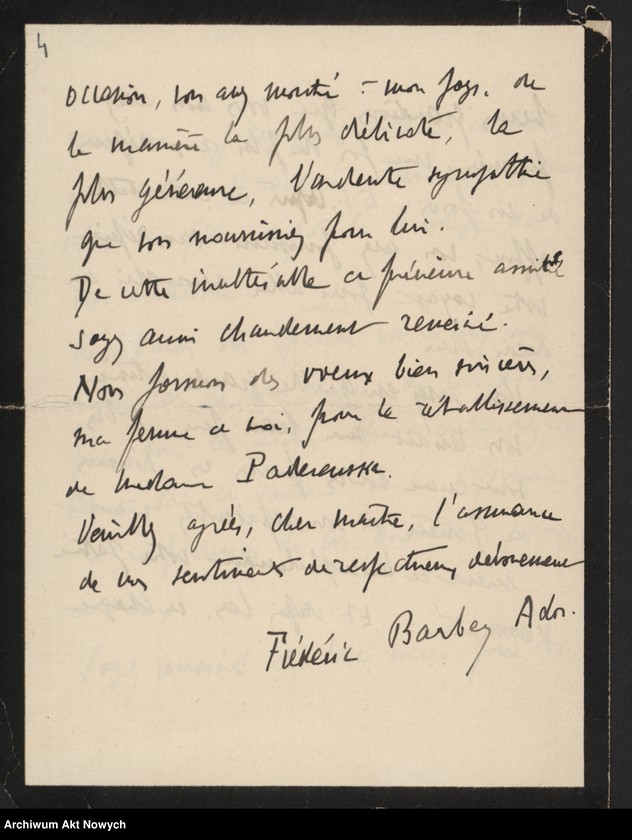 4
occasion, vous avez montré à mon pays, de
la manière la plus délicate, la
plus généreuse, l'ardente sympathie
que vous nourrissiez pour lui.
De cette inaltérable et précieuse amitié
soyez aussi chaudement remercié.
Nous formons des vœux bien sincères,
ma femme et moi, pour le rétablissement
de Madame Paderewska.
Veuillez agréer, cher maître, l'assurance
de mes sentiments de respectueux dévouement
Frédéric Barbey Ador.
Archiwum Akt Nowych